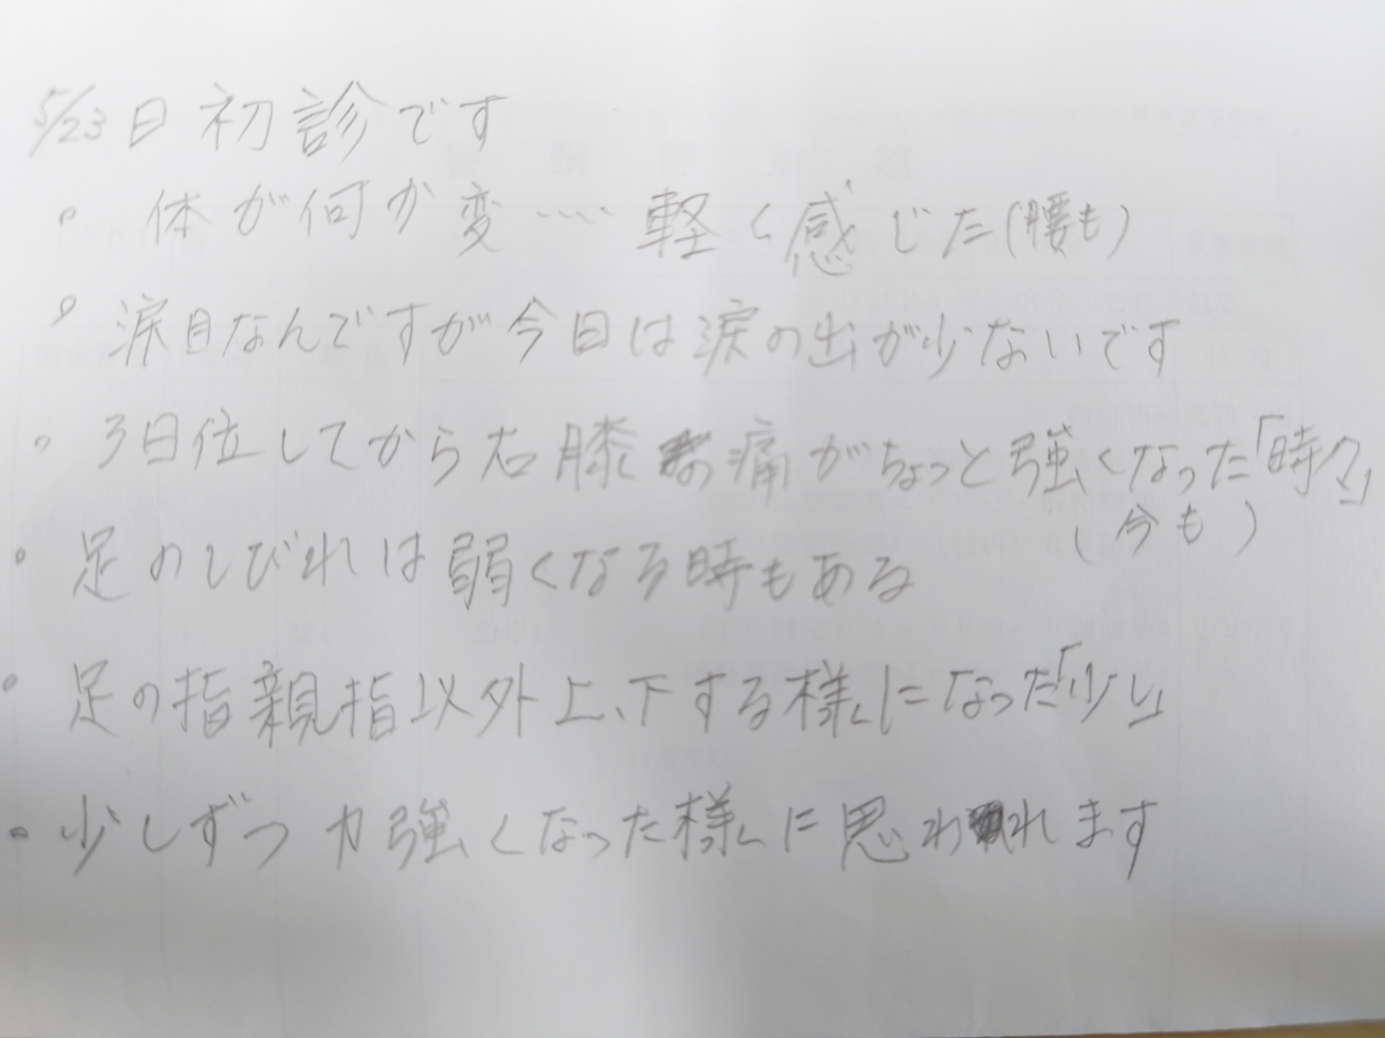 5/23日 初診です
・ 体が何か変……軽く感じた(腰も)
・ 涙目なんですが今日は涙の出が少ないです
・ 3日位してから右膝の痛がちょっと強くなった「時々」
(今も)
・ 足のしびれは弱くなる時もある
・ 足の指親指以外上、下する様になった「少し」
・ 少しずつ力強くなった様に思われます